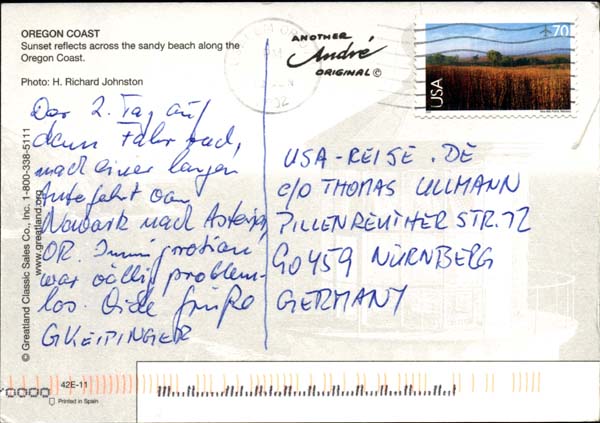 OREGON COAST
Sunset reflects across the sandy beach along the
Oregon Coast.
Photo: H. Richard Johnston
ANOTHER
André
ORIGINAL ©
70
USA
Der 2. Tag auf
dem Fahrrad,
nach einer langen
Autofahrt von
Newark nach Astoria,
OR. Immigration
war völlig problem-
los. Viele Grüße
G KEIPINGER
USA-REISE.DE
C/O THOMAS ULLMANN
PILLENREUTHER STR. 72
90459 NÜRNBERG
GERMANY
© Greatland Classic Sales Co., Inc. 1-800-338-5111
www.greatland.org
42E-11
Printed in Spain